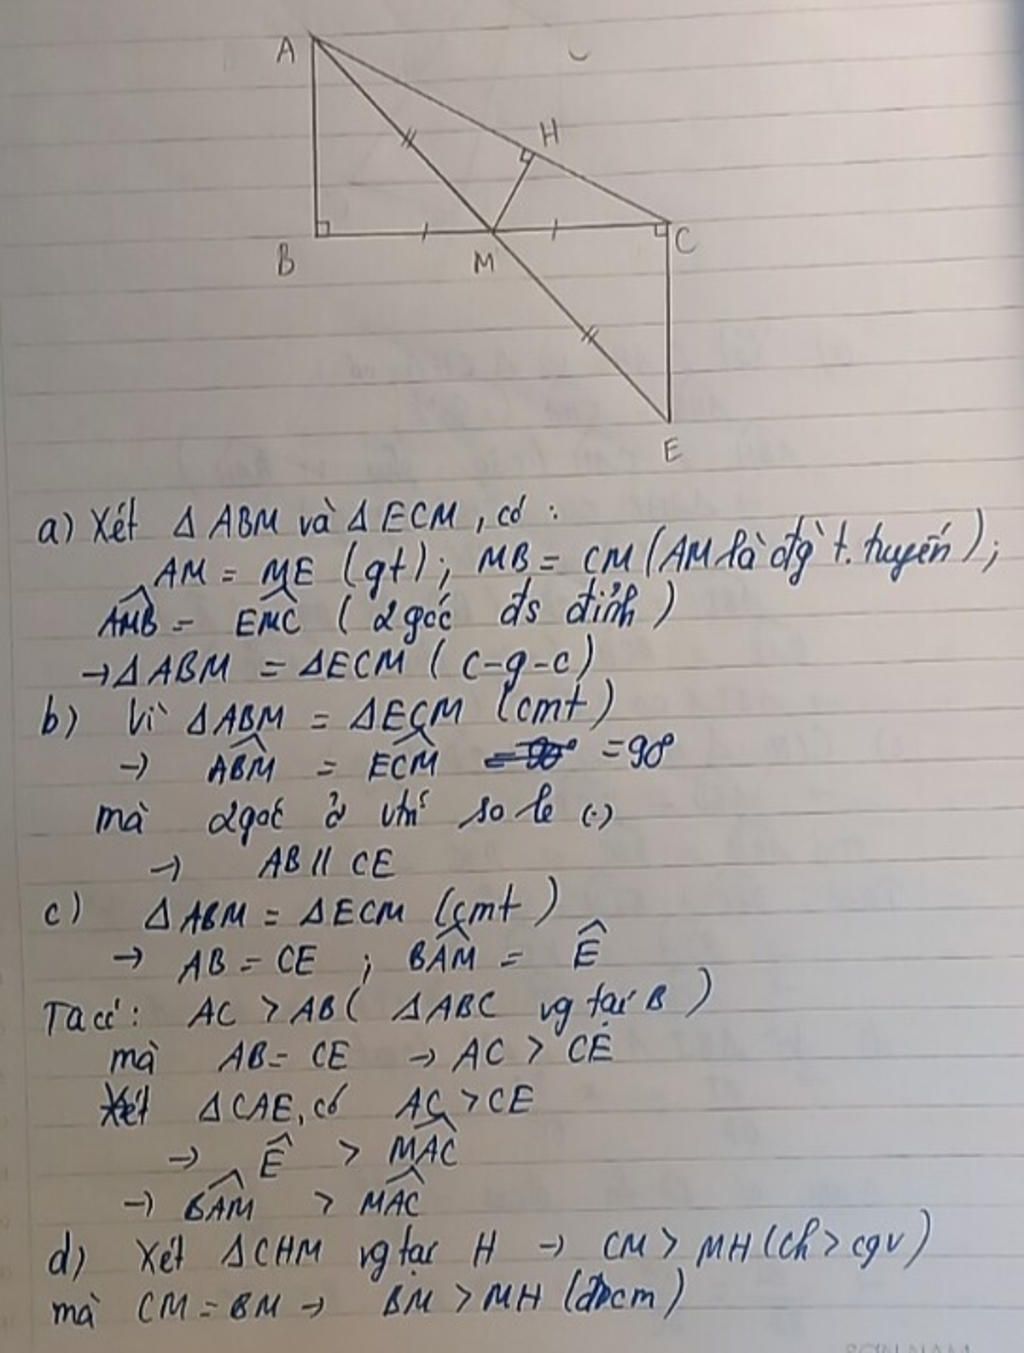 A
H
B
M
C
E
a) Xét Δ ABM và Δ ECM, có :
AM = ME (gt); MB = CM (AM là đg t. tuyến);
AMB = EMC ( 2 góc đs đỉnh )
→ Δ ABM = Δ ECM ( c-g-c)
b) Vì Δ ABM = Δ ECM (cmt)
→ ABM = ECM = 90°
mà 2 góc ở vtrí so le (.)
→ AB // CE
c) Δ ABM = Δ ECM (cmt)
→ AB = CE ; BAM = Ê
Ta có: AC > AB ( Δ ABC vg tại B )
mà AB = CE → AC > CE
Xét Δ CAE, có AC > CE
→ Ê > MAC
→ BAM > MAC
d) Xét Δ CHM vg tại H → CM > MH (ch > cgv)
mà CM = BM → BM > MH (đpcm)